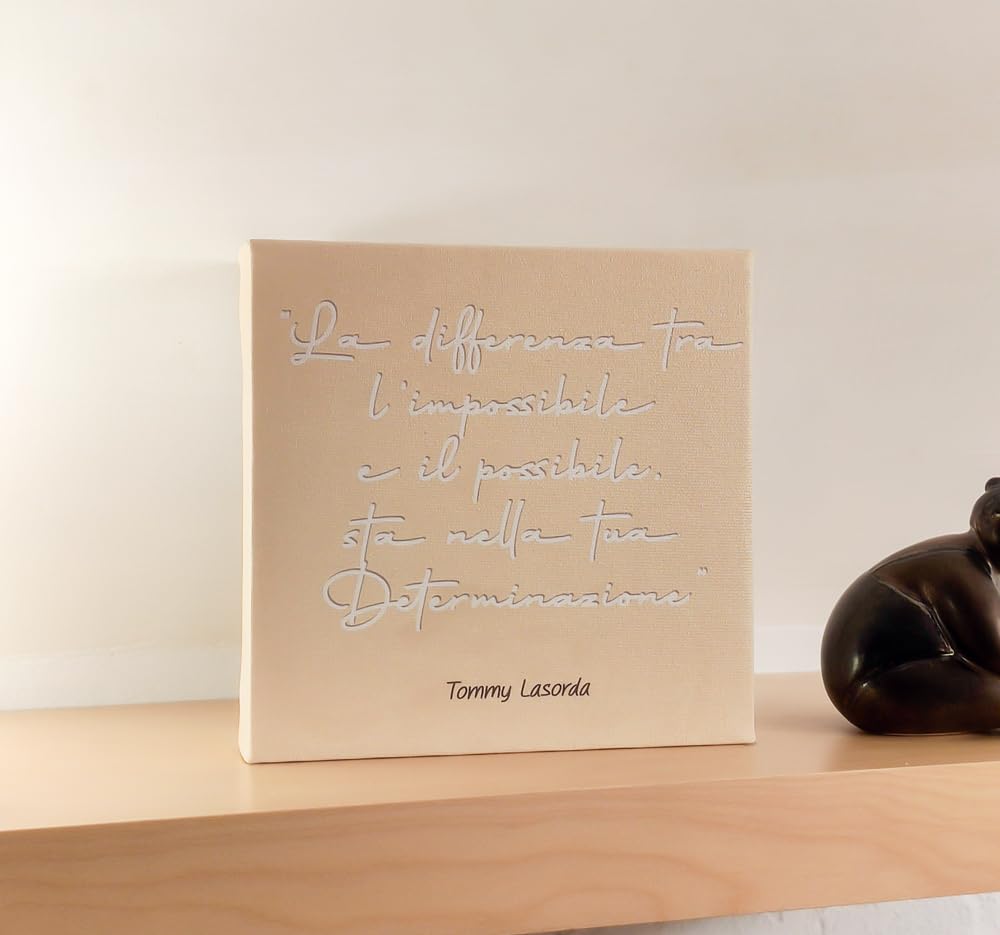 "La differenza tra
l'impossibile
e il possibile.
sta nella tua
Determinazione"
Tommy Lasorda